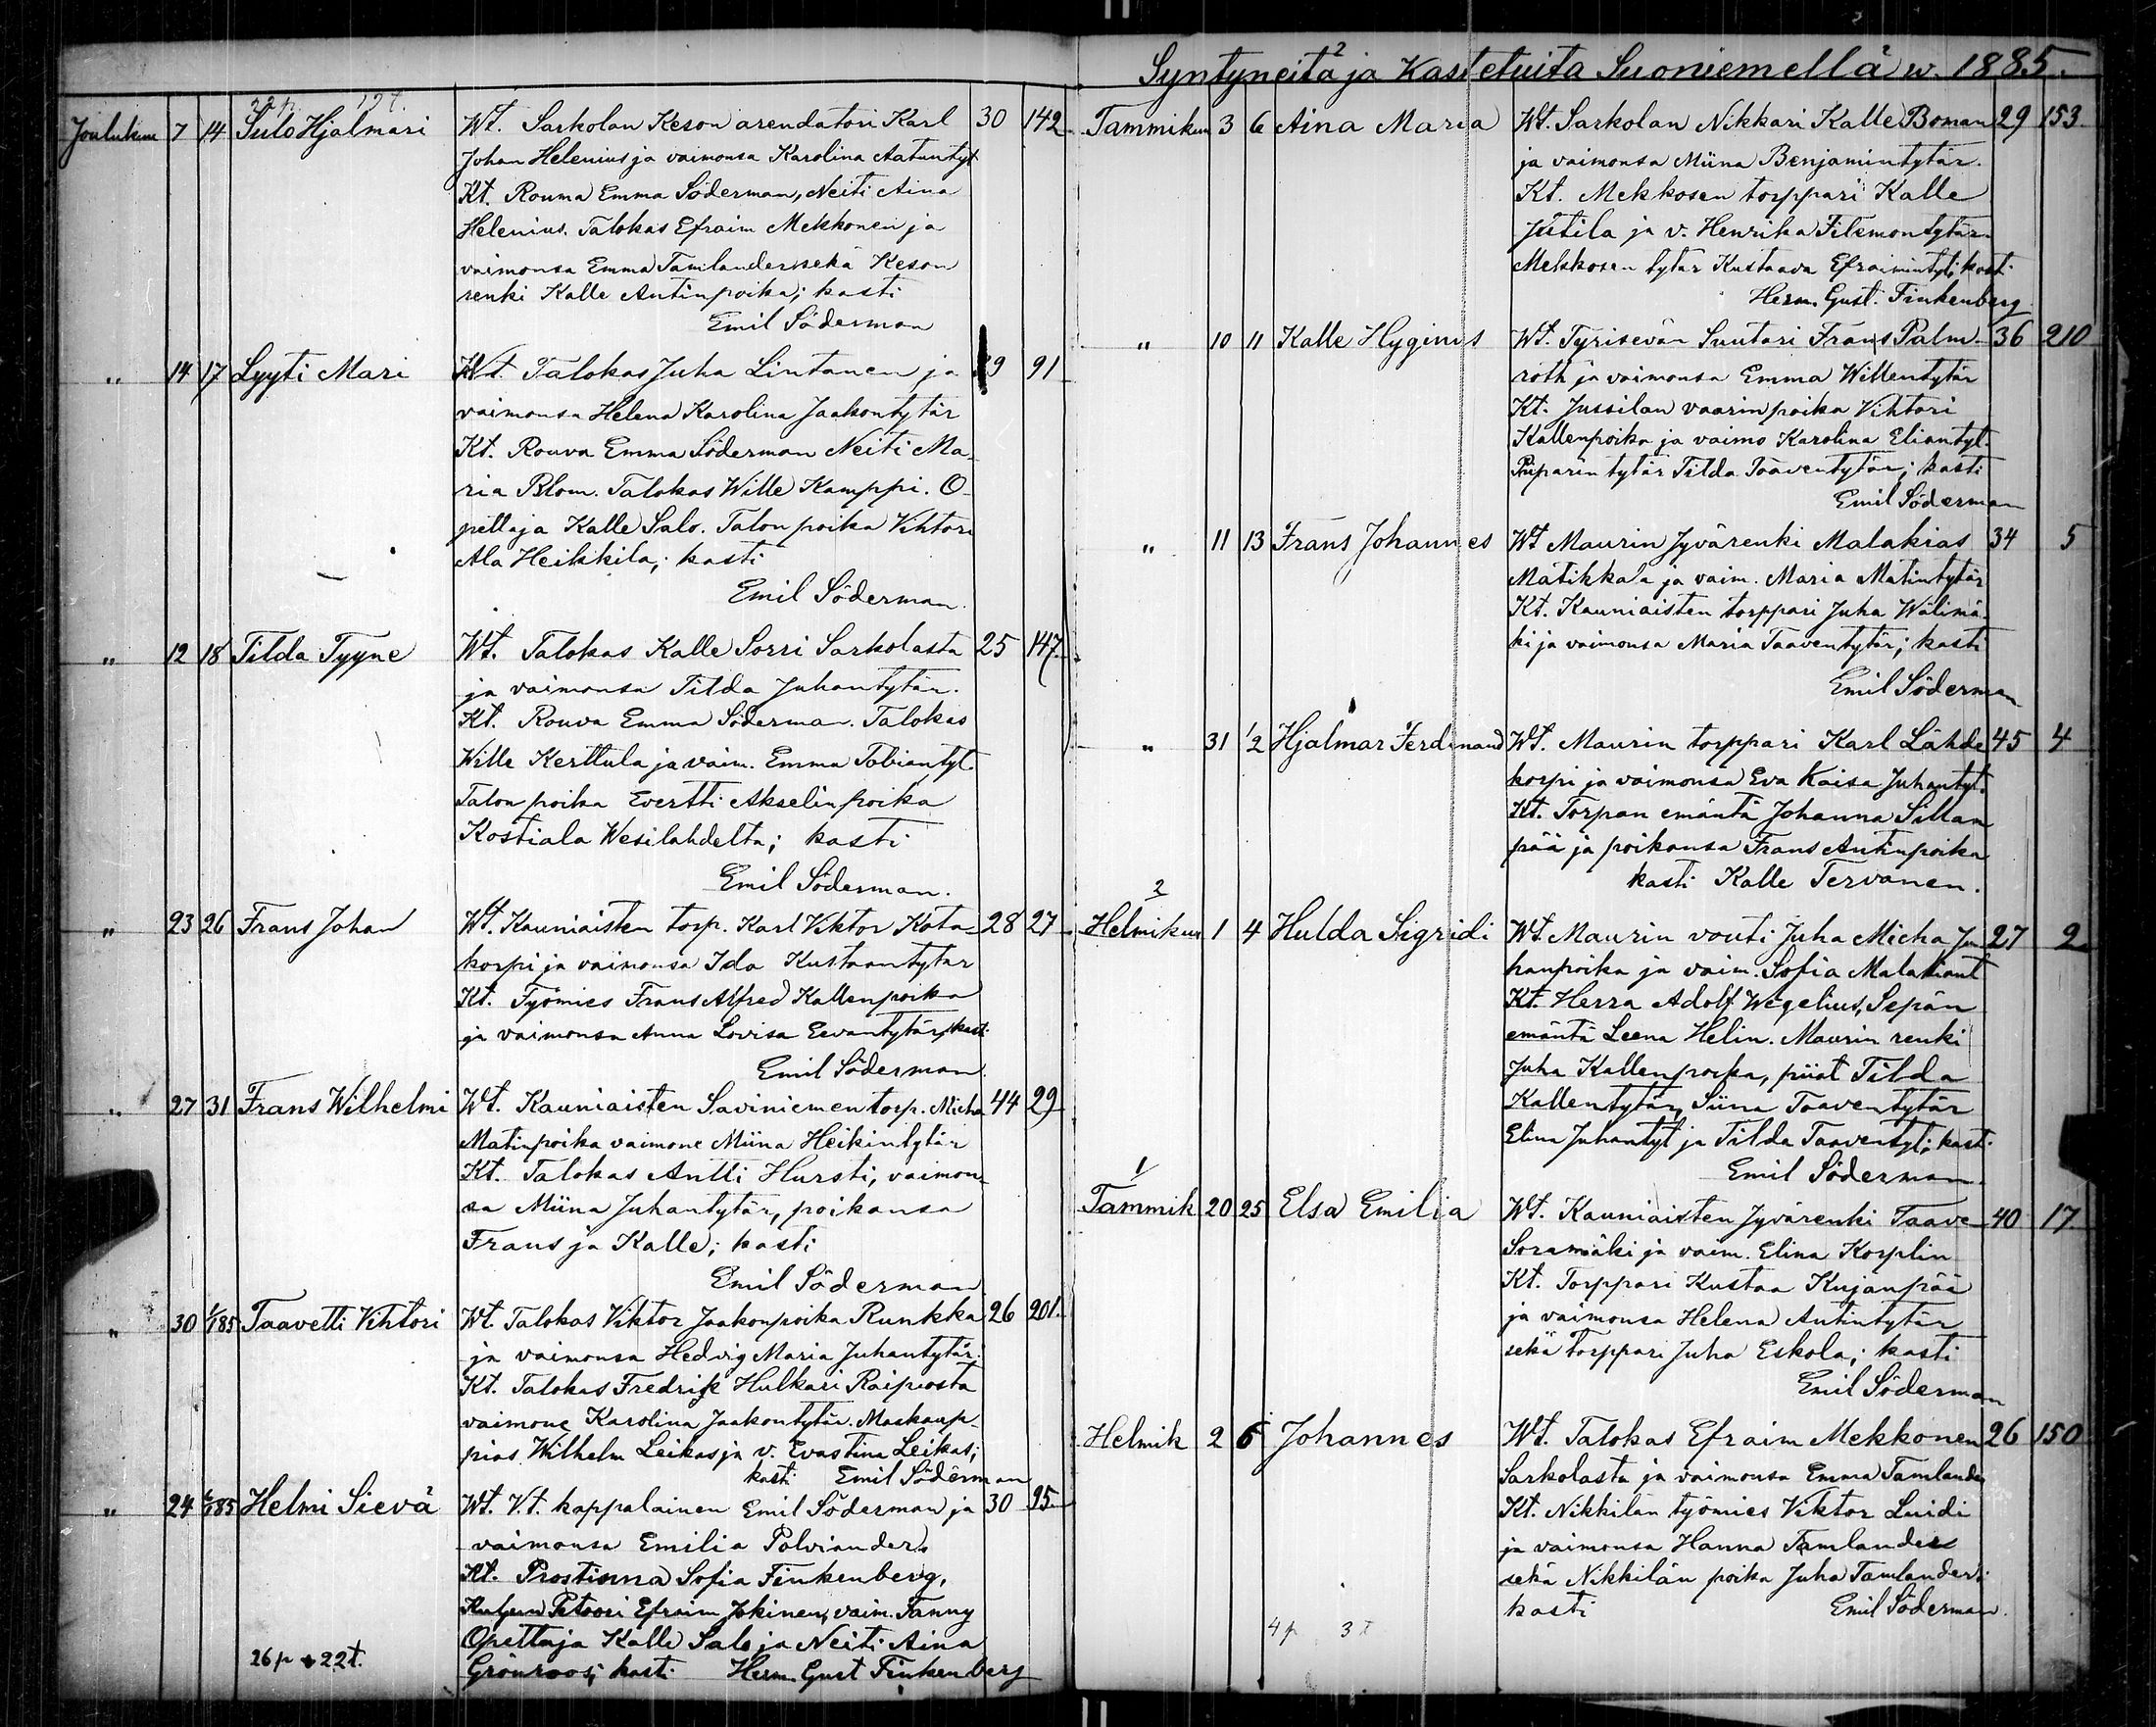 22 p. 19 t.
Joulukuu 7 14 Sulo Hjalmari Wt. Sarkolan Keson arendatori Karl 30 142
Johan Helenius ja vaimonsa Karolina Aatuntyt.
Kt. Rouma Emma Söderman, Neiti Aina
Helenius. Talokas Efraim Mekkonen ja
vaimonsa Emma Tamlander sekä Keson
renki Kalle Antinpoika; kasti
Emil Söderman
" 14 17 Lyyti Mari Wt. Talokas Juha Lintanen ja 39 91
vaimonsa Helena Karolina Jaakontytär
Kt. Rouva Emma Söderman Neiti Ma-
ria Blom. Talokas Wille Kamppi. O-
pettaja Kalle Salo. Talon poika Vihtori
Ala Heikkila; kasti
Emil Söderman.
" 12 18 Tilda Tyyne Wt. Talokas Kalle Sorri Sarkolasta 25 147
ja vaimonsa Tilda Juhantytär.
Kt. Rouva Emma Söderman. Talokas
Wille Kerttula ja vaim. Emma Tobiantyt.
Talon poika Evertti Akselinpoika
Kostiala Wesilahdelta; kasti
Emil Söderman.
" 23 26 Frans Johan Wt. Kauniaisten torp. Karl Viktor Kota- 28 27
korpi ja vaimonsa Ida Kustaantytar
Kt. Työmies Frans Alfred Kallenpoika
ja vaimonsa Anna Lovisa Eevantytär; kasti
Emil Söderman.
" 27 31 Frans Wilhelmi Wt. Kauniaisten Saviniemen torp. Micha 44 29
Matinpoika vaimone Miina Heikintytär
Kt. Talokas Antti Hursti, vaimon-
sa Miina Juhantytär, poikansa
Frans ja Kalle; kasti
Emil Söderman
" 30 1/1 85 Taavetti Vihtori Wt. Talokas Viktor Jaakonpoika Runkka 26 201.
ja vaimonsa Hedvig Maria Juhantytär.
Kt. Talokas Fredrik Hulkari Raipiosta
vaimone Karolina Jaakontytär. Maskaup-
pias Wilhelm Leikas ja v. Evastina Leikas;
kasti Emil Söderman
" 24 /1 85 Helmi Sievä Wt. V.t. kappalainen Emil Söderman ja 30 95
vaimonsa Emilia Polviander.
Kt. Prostinna Sofia Finkenberg,
Efraim Jokinen, vaim. Fanny
Opettaja Kalle Salo ja Neiti Aina
Grönroos; kasti Herm. Gust Finkenberg
26 p 22 t.
2
Syntyneitä ja Kastetuita Suoniemellä w. 1885.
Tammikuu 3 6 Aina Maria Wt. Sarkolan Nikkari Kalle Boman 29 153
ja vaimonsa Miina Benjamintytär.
Kt. Mekkosen torppari Kalle
Jütila ja v. Henrika Filemontytär
Mekkosen tytär Kustaava Efraimintyt; kasti
Herm. Gust. Finkenberg.
" 10 11 Kalle Hyginus Wt. Tyrisevän Suutari Frans Palm- 36 210
roth ja vaimonsa Emma Willentytär
Kt. Jussilan vaarinpoika Vihtori
Kallenpoika ja vaimo Karolina Eliantyt.
Piiparin tytär Tilda Taaventytär; kasti
Emil Söderman
" 11 13 Frans Johannes Wt Maurin Jyvärenki Malakias 34 5
Matikkala ja vaim. Maria Matintytär
Kt. Kauniaisten torppari Juha Wälimä-
ki ja vaimonsa Maria Taaventytär; kasti
Emil Söderman
" 31 1/2 Hjalmar Ferdinand Wt. Maurin torppari Karl Lähde- 45 4
korpi ja vaimonsa Eva Kaisa Juhantyt.
Kt. Torpan emäntä Johanna Sillan
pää ja poikansa Frans Antinpoika
kasti Kalle Tervanen.
2
Helmikuu 1 4 Hulda Sigridi Wt. Maurin vouti Juha Micha Ju 27 2
hanpoika ja vaim. Sofia Malakiant
Kt. Herra Adolf Wegelius, Sepän
emäntä Leena Helin. Maurin renki
Juha Kallenpoika, piiat Tilda
Kallentytär, Siina Taaventytär
Elina Juhantyt ja Tilda Taaventyt; kasti
Emil Söderman.
1/
Tammik 20 25 Elsa Emilia Wt. Kauniaisten Jyvärenki Taave 40 17
Soramäki ja vaim. Elina Korplin
Kt. Torppari Kustaa Kujanpää
ja vaimonsa Helena Antintytär
sekä torppari Juha Eskola; kasti
Emil Söderman
Helmik 2 6 Johannes Wt. Talokas Efraim Mekkonen 26 150
Sarkolasta ja vaimonsa Emma Tamlander
Kt. Nikkilän työmies Viktor Luidi
ja vaimonsa Hanna Tamlander
sekä Nikkilän poika Juha Tamlander;
kasti Emil Söderman.
4 p 3 t